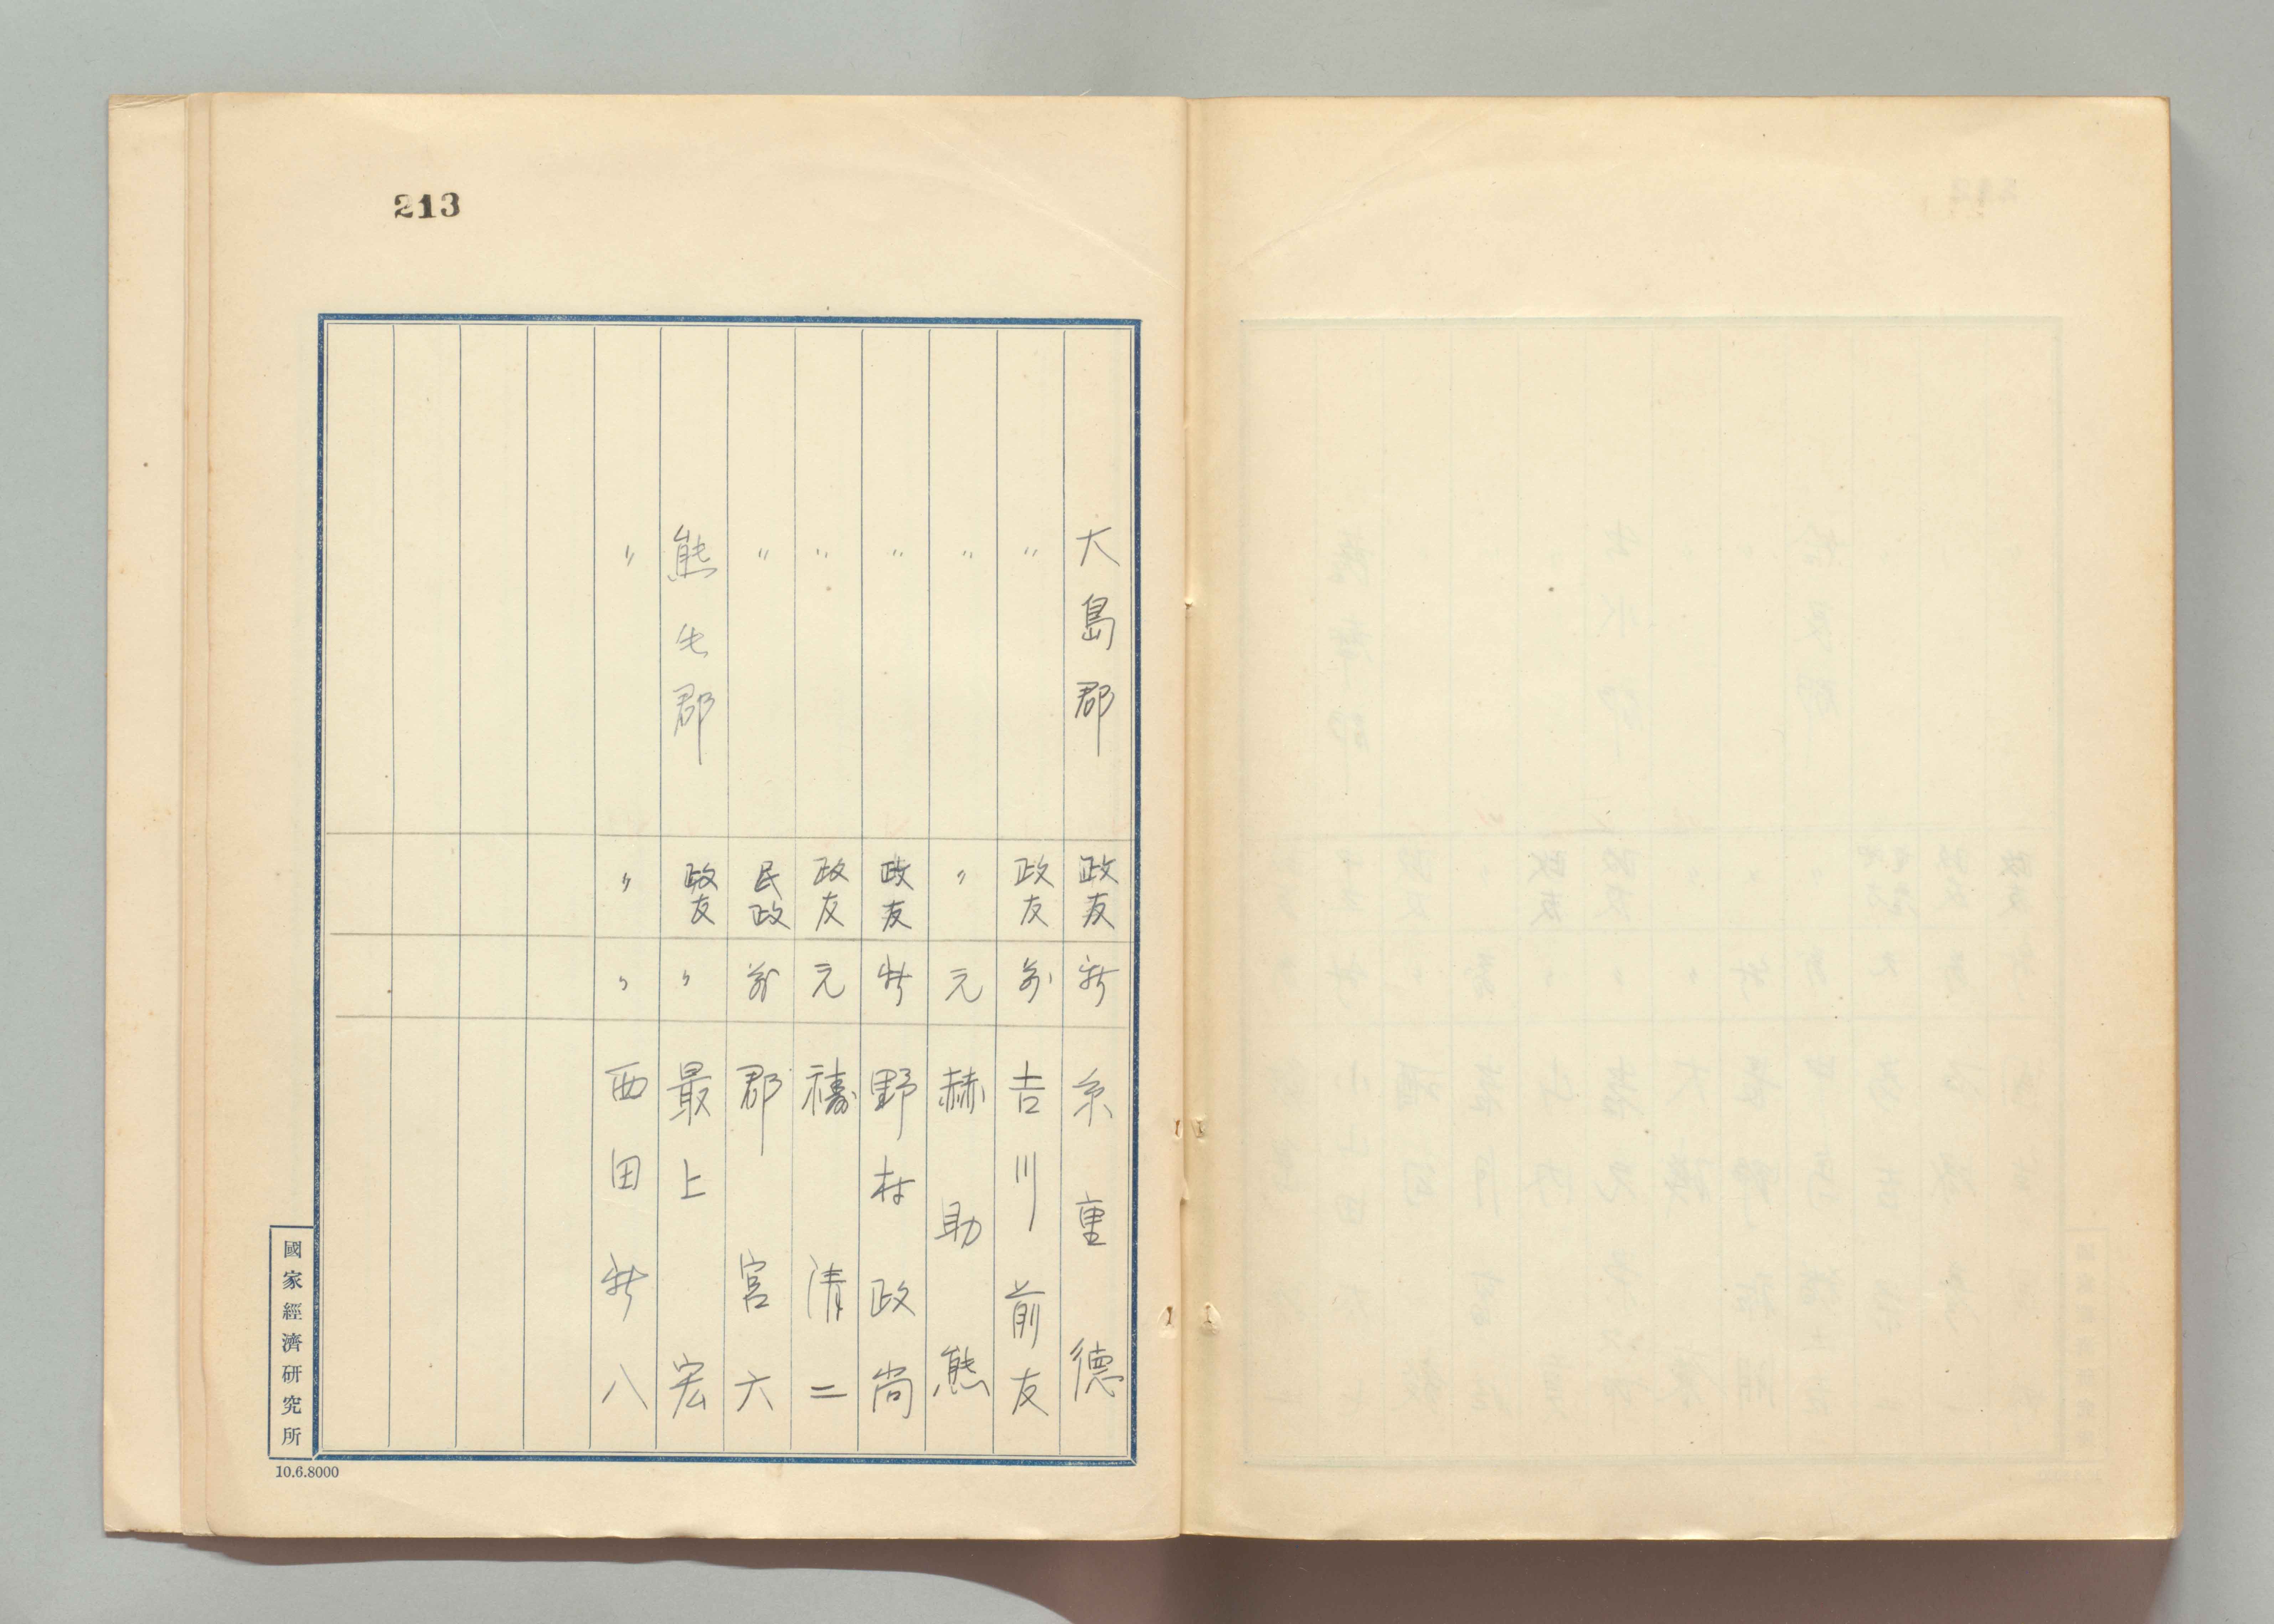 213
大島郡 政友 新 糸重德
〃 政友 前 吉川前友
〃 〃 元 赫助熊
〃 政友 新 野村政尚
〃 政友 元 禱清二
〃 民政 前 郡宮六
熊毛郡 政友 〃 最上宏
〃 〃 〃 西田新八
國家經濟研究所
10.6.8000